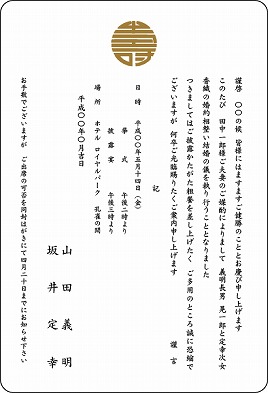 謹啓 〇〇の候 皆様にはますますご健勝のこととお慶び申し上げます
このたび 田中一郎様ご夫妻のご媒酌によりまして 義明長男 晃一郎と定幸次女
香織の婚約相整い結婚の儀を執り行うこととなりました
つきましてはご披露かたがた粗餐を差し上げたく ご多用のところ誠に恐縮で
ございますが 何卒ご光臨賜りたくご案内申し上げます
謹言
記
日時 平成〇〇年五月十四日(金)
挙式 午後二時より
披露宴 午後三時より
場所 ホテル ロイヤルパーク 孔雀の間
平成〇〇年〇月吉日
山田義明
坂井定幸
お手数でございますが ご出席の可否を同封はがきにて四月二十日までにお知らせ下さい